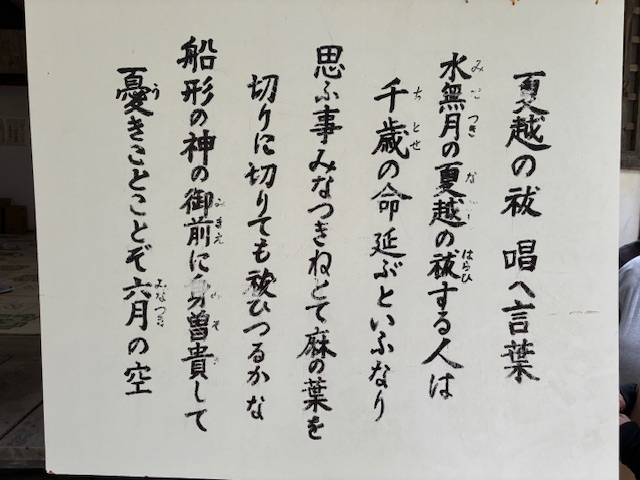 夏越の祓 唱へ言葉
水無月の夏越の祓する人は
千歳の命延ぶといふなり
思ふ事みなつきねとて麻の葉を
切りに切りても祓ひつるかな
船形の神の御前に身曽貴して
憂きことことぞ六月の空